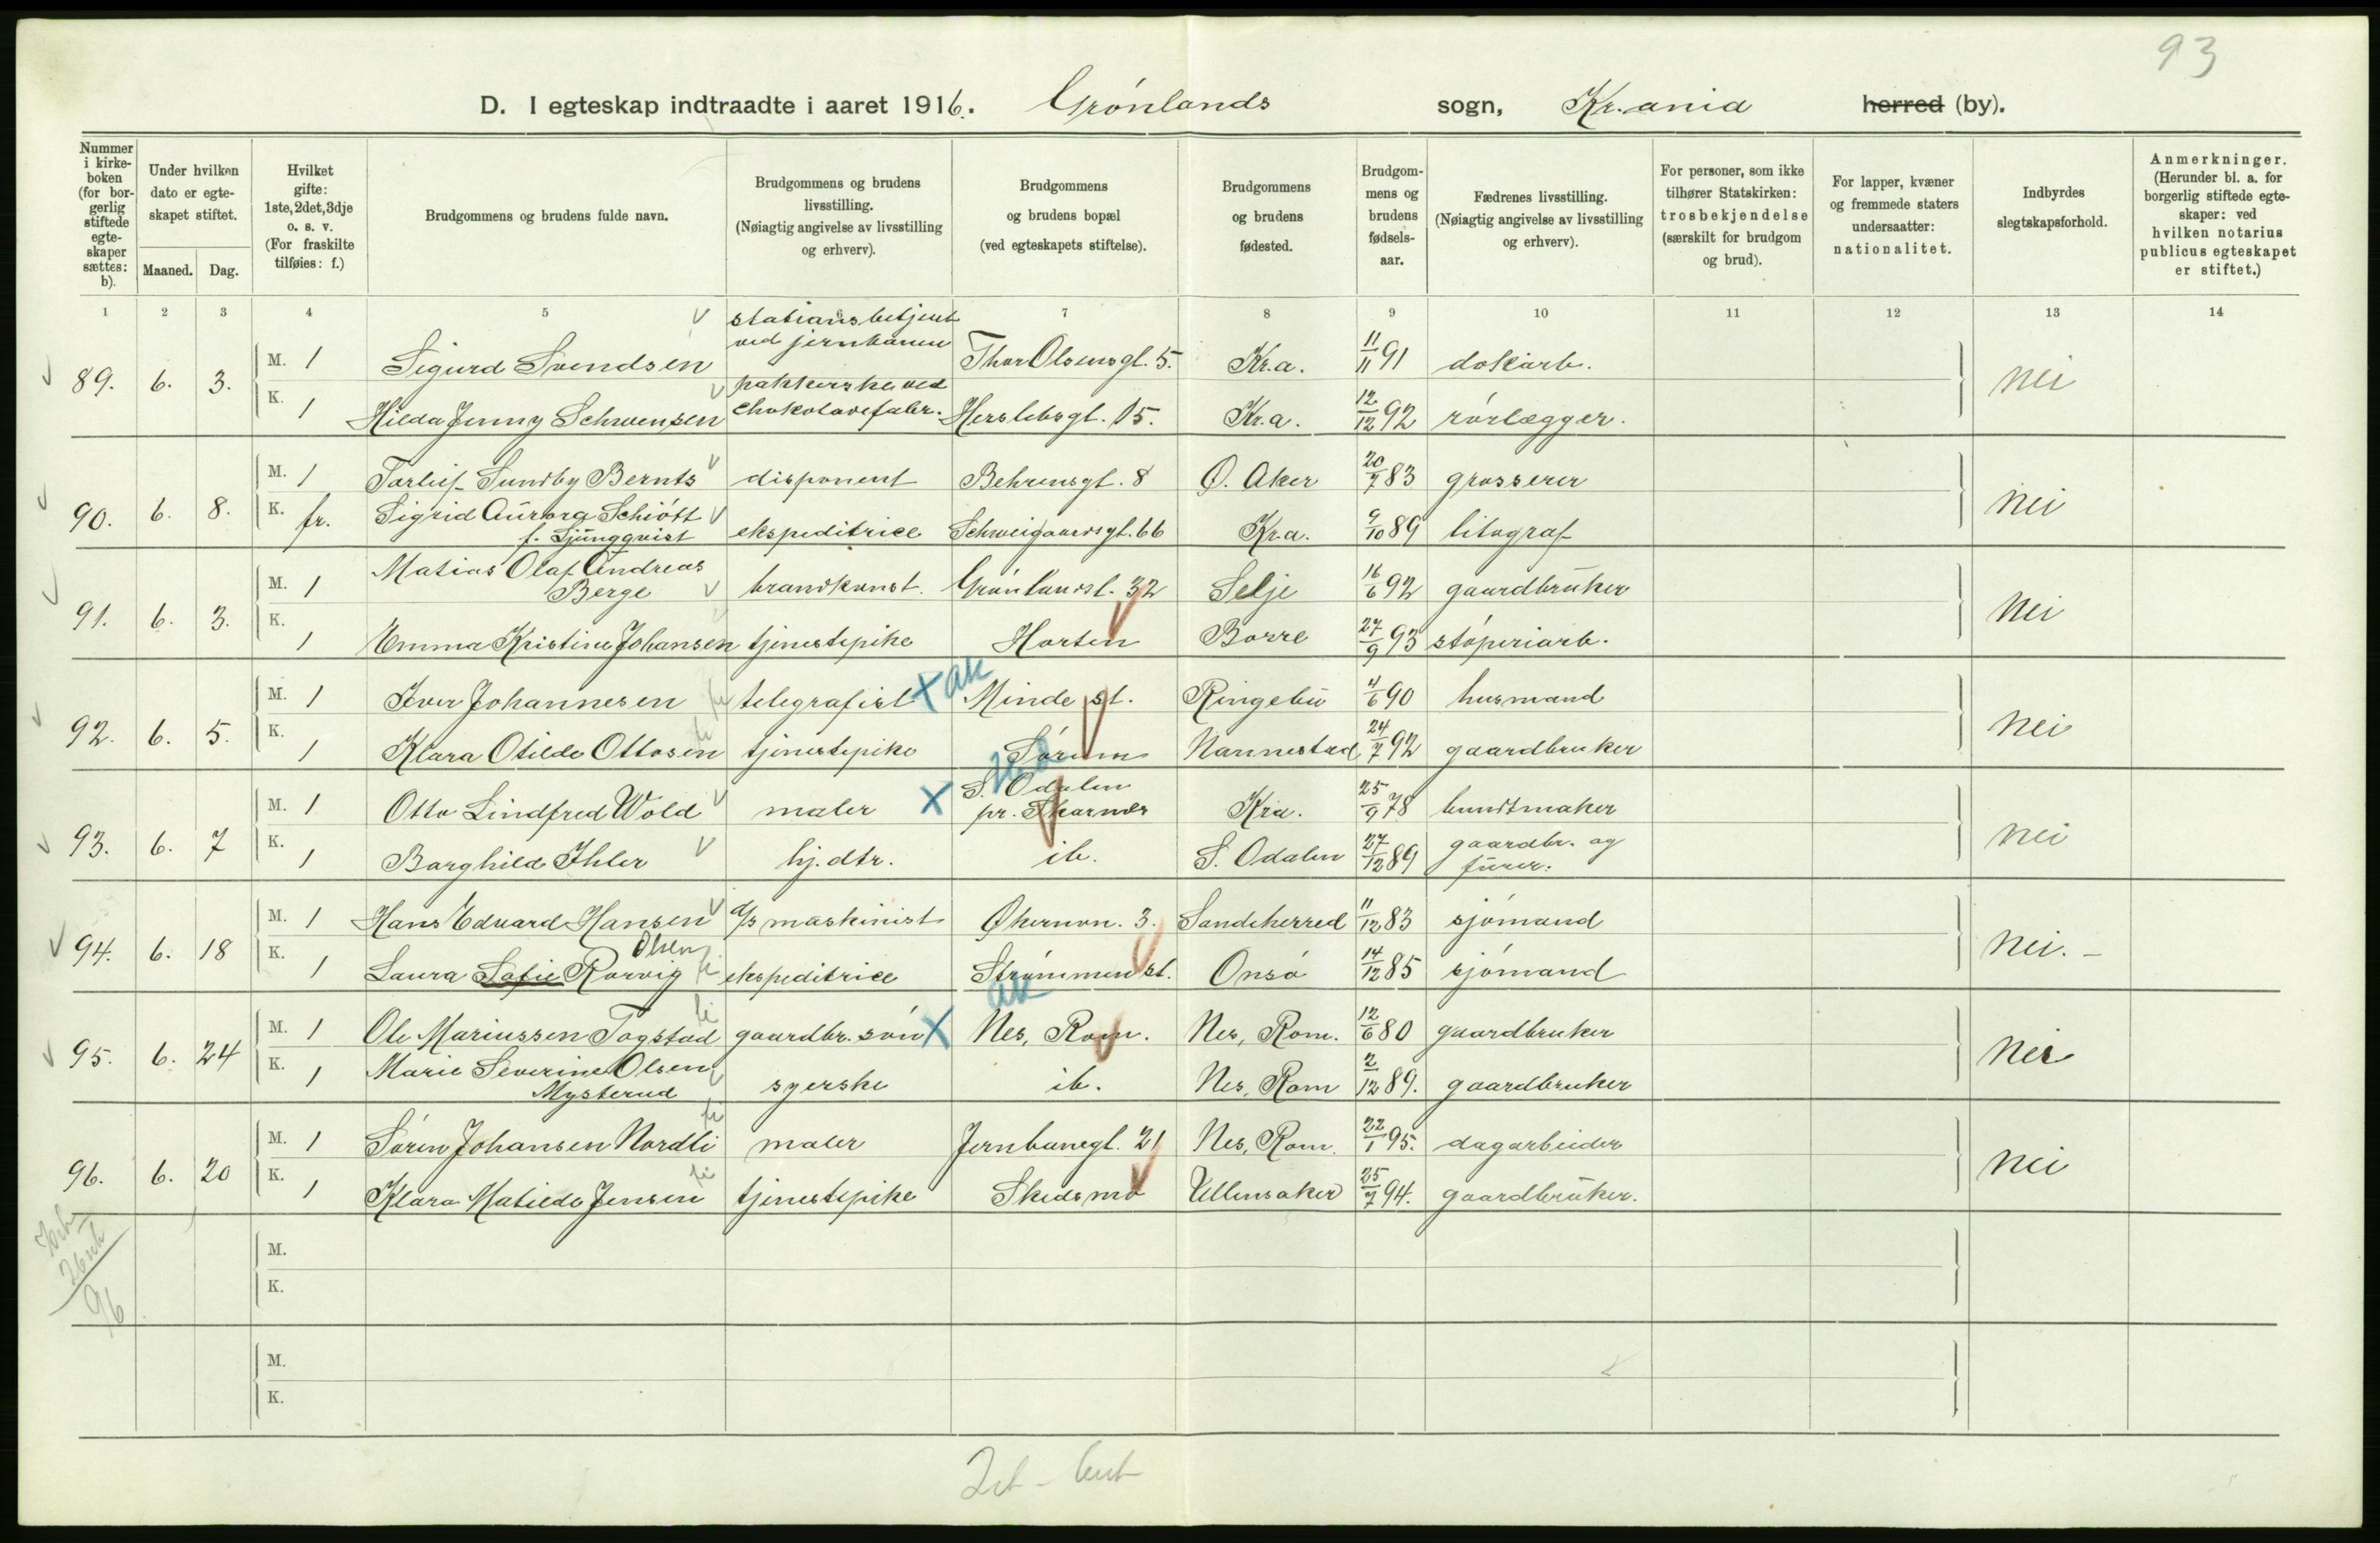 93
D. I egteskap indtraadte i aaret 1916. Grønlands sogn, Kr.ania herred (by).
Nummer i kirkeboken (for borgerlig stiftede egteskaper sættes: b).
Under hvilken dato er egteskapet stiftet.
Maaned. Dag.
Hvilket gifte: 1ste, 2det, 3dje o. s. v. (For fraskilte tilføies: f.)
Brudgommens og brudens fulde navn.
Brudgommens og brudens livsstilling. (Nøiagtig angivelse av livsstilling og erhverv).
Brudgommens og brudens bopæl (ved egteskapets stiftelse).
Brudgommens og brudens fødested.
Brudgommens og brudens fødselsaar.
Fædrenes livsstilling. (Nøiagtig angivelse av livsstilling og erhverv).
For personer, som ikke tilhører Statskirken: trosbekjendelse (særskilt for brudgom og brud).
For lapper, kvæner og fremmede staters undersaatter: nationalitet.
Indbyrdes slegtskapsforhold.
Anmerkninger. (Herunder bl. a. for borgerlig stiftede egteskaper: ved hvilken notarius publicus egteskapet er stiftet.)
1 2 3 4 5 6 7 8 9 10 11 12 13 14
89. 6. 3. M. 1 Sigurd Svendsen stationsbetjent ved jernbanen Thor Olsensgt. 5. Kr.a. 11/11 91 dokarb. nei
K. 1 Hilda Jenny Schwensen pakkerske ved chokoladefabr. Herslebsgt. 15. Kr.a. 12/12 92 rørlægger.
90. 6. 8. M. 1 Torleif Sundby Bernts disponent Behrensgt. 8 Ø. Aker 20/7 83 grosserer nei
K. fr. Sigrid Aurora Schiøtt f. Ljungqvist ekspeditrice Schweigaardsgt. 66 Kr.a. 9/10 89 litograf
91. 6. 3. M. 1 Matias Olaf Andreas Berge brandkonst. Grønlandsl. 32 Selje 16/6 92 gaardbruker nei
K. 1 Emma Kristine Johansen tjenestepike Horten Borre 27/9 93 støperiarb.
92. 6. 5. M. 1 Iver Johannesen telegrafist X ak Minde st. Ringebu 4/6 90 husmand nei
K. 1 Klara Otilde Ottosen tjenestepike Sørum Nannestad 24/7 92 gaardbruker
93. 6. 7 M. 1 Otto Lindfred Wold maler X S. Odalen pr. Skarnes Kra. 25/9 78 bundtmaker nei
K. 1 Borghild Ihler hj. dtr. ib. S. Odalen 27/12 89 gaardbr. og furer.
94. 6. 18 M. 1 Hans Edvard Hansen maskinist Økernvn. 3. Sandeherred 11/12 83 sjømand nei. -
K. 1 Laura Sofie Rørvig Olsen ekspeditrice Strømmen st. Onsø 14/12 85 sjømand
95. 6. 24 M. 1 Ole Mariussen Togstad gaardbr. søn X ak Nes, Rom. Nes, Rom. 12/6 80 gaardbruker Nei
K. 1 Marie Severine Olsen Mysterud syerske ib. Nes, Rom 2/12 89. gaardbruker
96. 6. 20 M. 1 Søren Johansen Nordli maler Jernbanegt. 21 Nes, Rom. 22/1 95. dagarbeider nei
K. 1 Klara Matilde Jensen tjenestepike Skedsmo Ullensaker 25/7 94. gaardbruker.
96
M.
K.
M.
K.